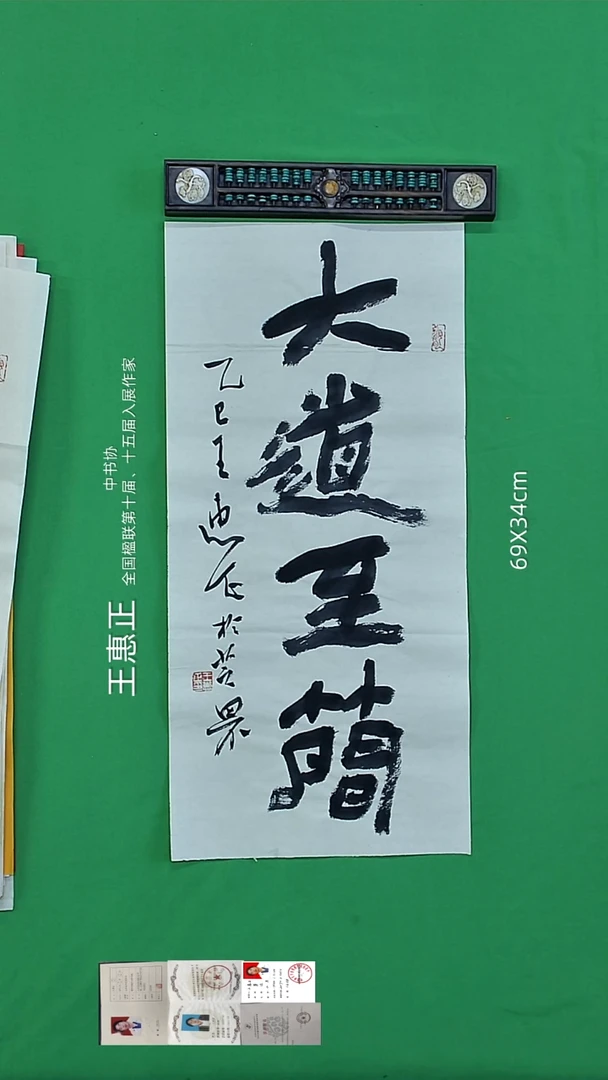 大道至簡
乙巳王惠正於芝罘
王惠正
中书协
全国楹联第十届、十五届入展作家
69X34cm